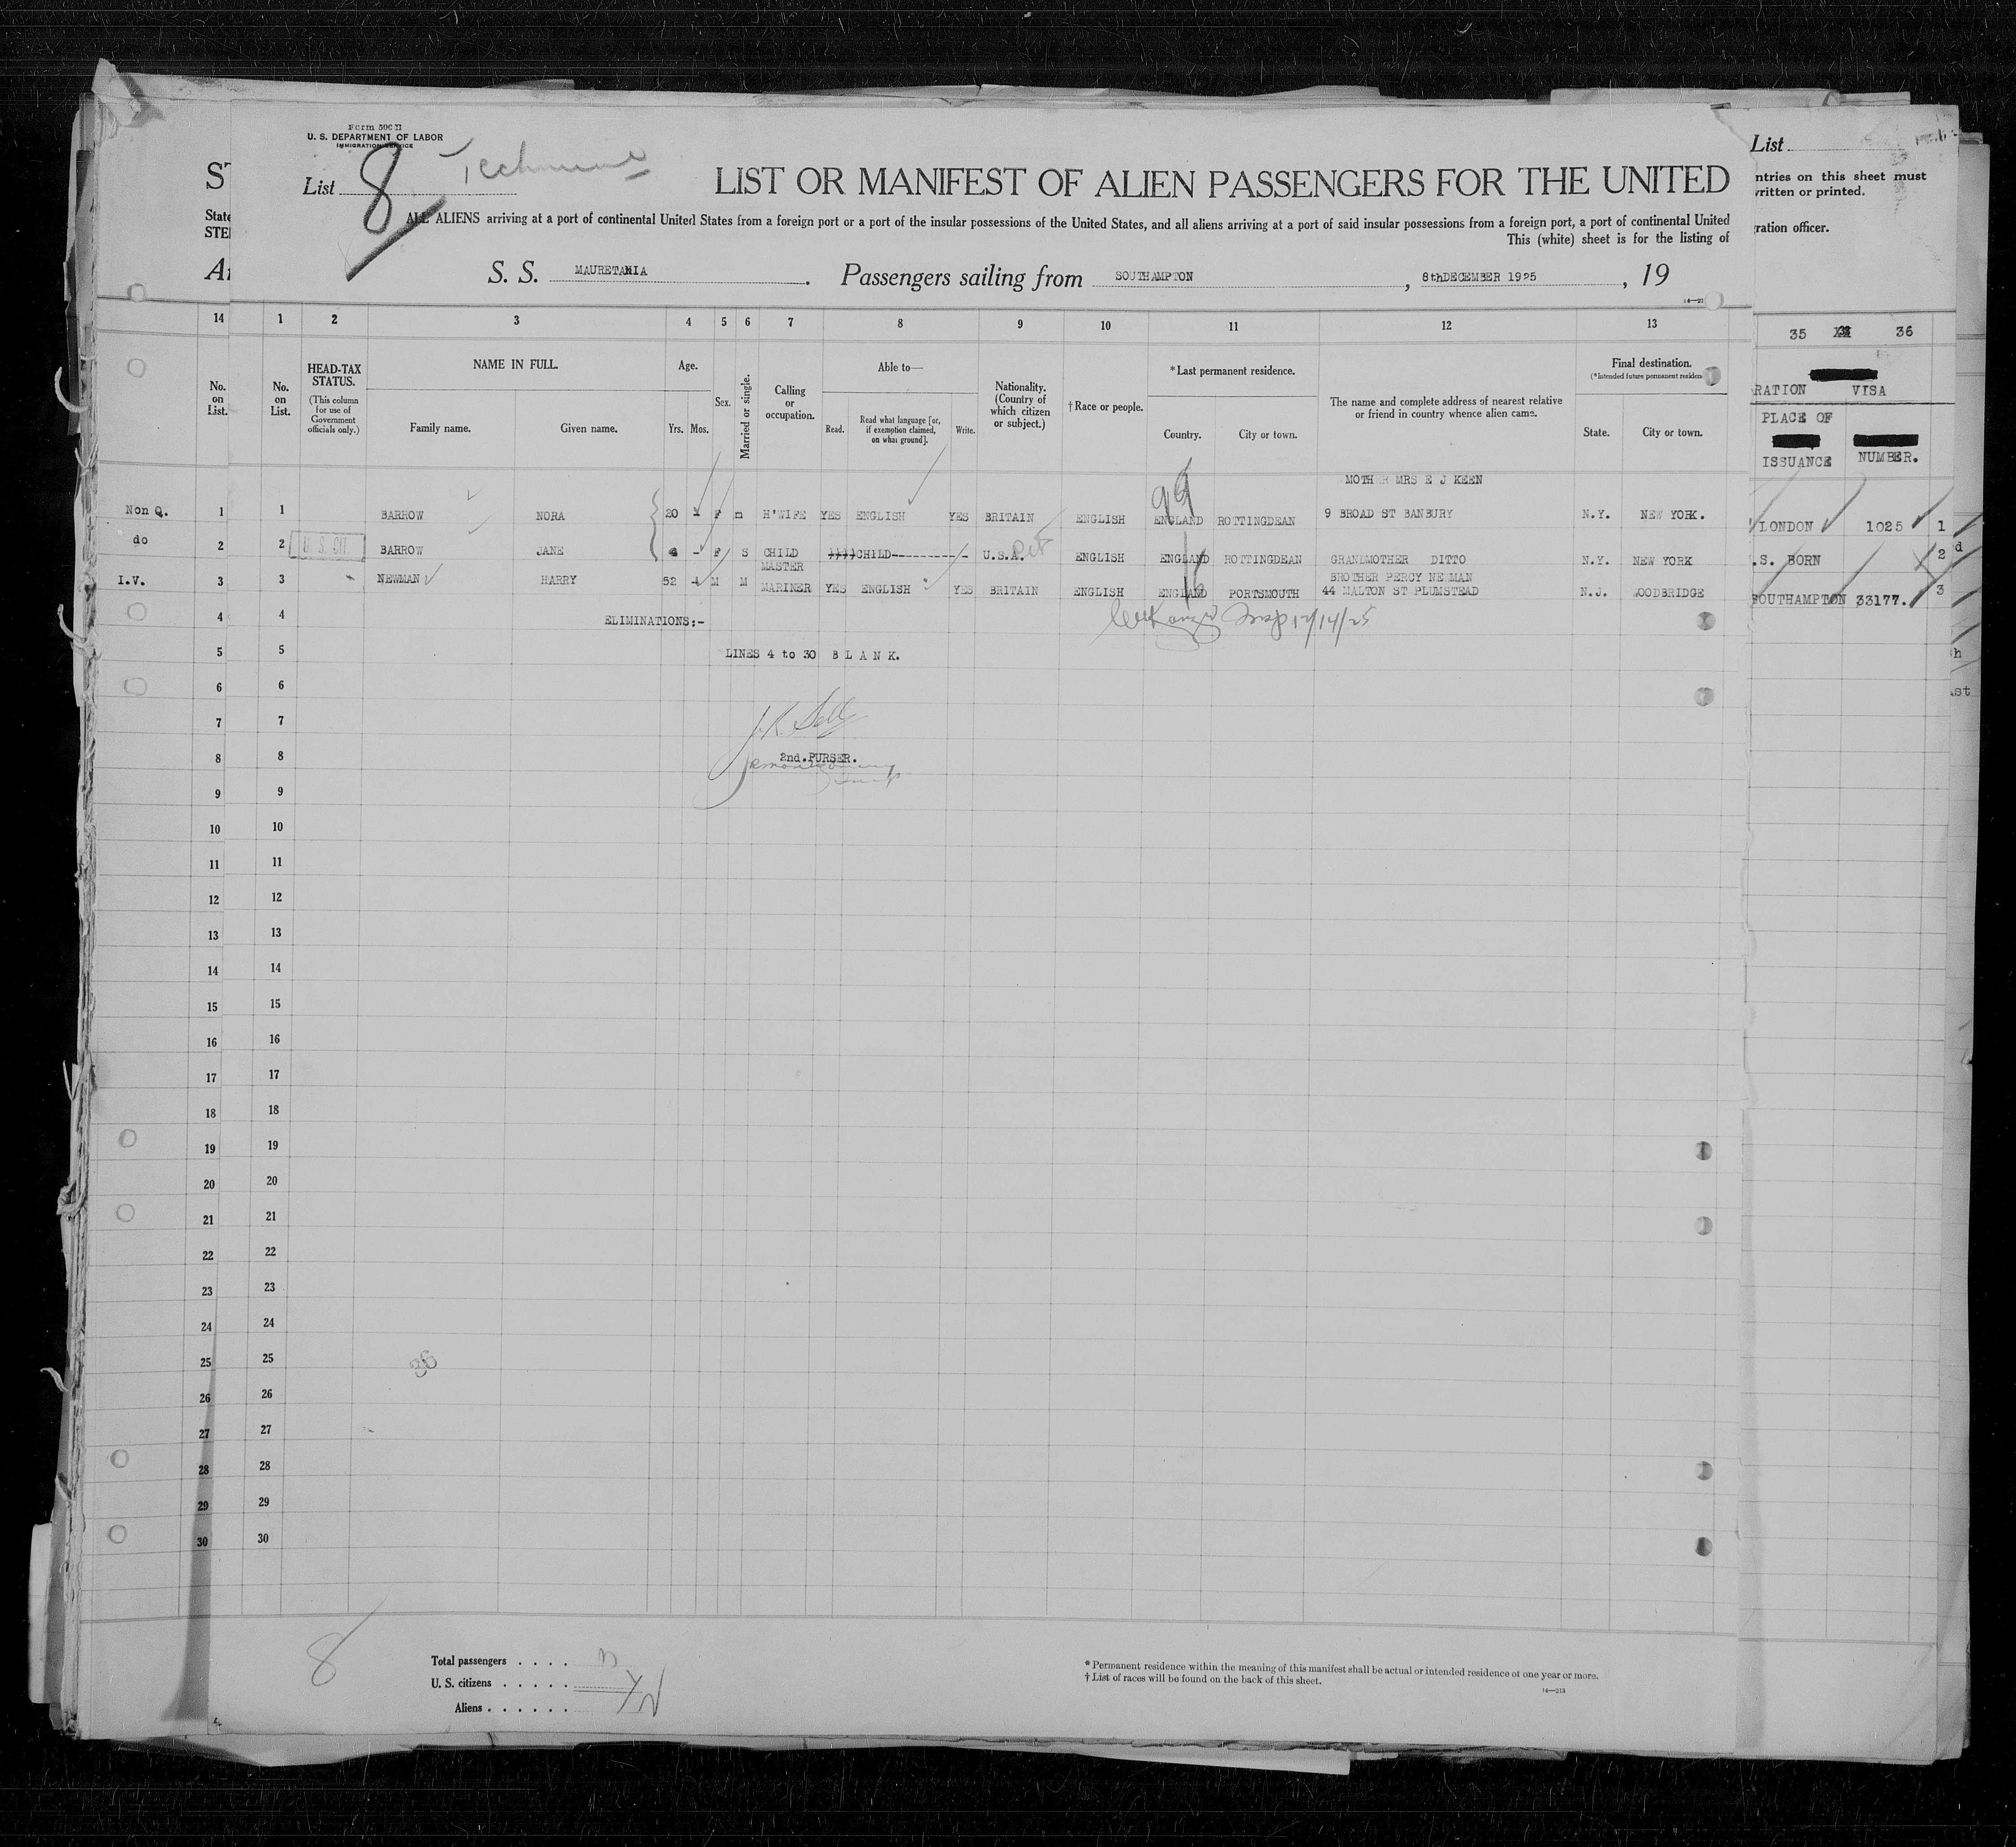 Form 500 II
U. S. DEPARTMENT OF LABOR
IMMIGRATION SERVICE
List 8
LIST OR MANIFEST OF ALIEN PASSENGERS FOR THE UNITED
ALL ALIENS arriving at a port of continental United States from a foreign port or a port of the insular possessions of the United States, and all aliens arriving at a port of said insular possessions from a foreign port, a port of continental United
This (white) sheet is for the listing of
S. S. MAURETANIA. Passengers sailing from SOUTHAMPTON, 8thDECEMBER 1925, 19
ST
State
STE
List
ntries on this sheet must
written or printed.
ration officer.
14 1 2 3 4 5 6 7 8 9 10 11 12 13 35 36
No. on List.
No. on List.
HEAD-TAX STATUS.
(This column for use of Government officials only.)
NAME IN FULL.
Family name. Given name.
Age.
Yrs. Mos.
Sex.
Married or single.
Calling or occupation.
Able to—
Read. Read what language [or, if exemption claimed, on what ground]. Write.
Nationality. (Country of which citizen or subject.)
† Race or people.
* Last permanent residence.
Country. City or town.
The name and complete address of nearest relative or friend in country whence alien came.
Final destination.
(* Intended future permanent residen
State. City or town.
RATION VISA
PLACE OF
ISSUANCE NUMBER.
MOTHER MRS E J KEEN
Non Q. 1 1 BARROW NORA 20 F m H'WIFE YES ENGLISH YES BRITAIN ENGLISH ENGLAND ROTTINGDEAN 9 BROAD ST BANBURY N.Y. NEW YORK. LONDON 1025 1
do 2 2 U. S. CIT. BARROW JANE 4 - F S CHILD CHILD---------- U.S.A. ENGLISH ENGLAND ROTTINGDEAN GRANDMOTHER DITTO N.Y. NEW YORK .S. BORN 2
MASTER BROTHER PERCY NEWMAN
I.V. 3 3 NEWMAN HARRY 52 M M MARINER YES ENGLISH YES BRITAIN ENGLISH ENGLAND PORTSMOUTH 44 MALTON ST PLUMSTEAD N.J. WOODBRIDGE SOUTHAMPTON 33177. 3
99
16
4 4 ELIMINATIONS:- 12/14/25
5 5 LINES 4 to 30 B L A N K.
6 6
7 7
8 8 2nd.PURSER.
9 9
10 10
11 11
12 12
13 13
14 14
15 15
16 16
17 17
18 18
19 19
20 20
21 21
22 22
23 23
24 24
25 25
26 26
27 27
28 28
29 29
30 30
8
Total passengers . . . .
U. S. citizens . . . . .
Aliens . . . . . .
* Permanent residence within the meaning of this manifest shall be actual or intended residence of one year or more.
† List of races will be found on the back of this sheet.
14—213